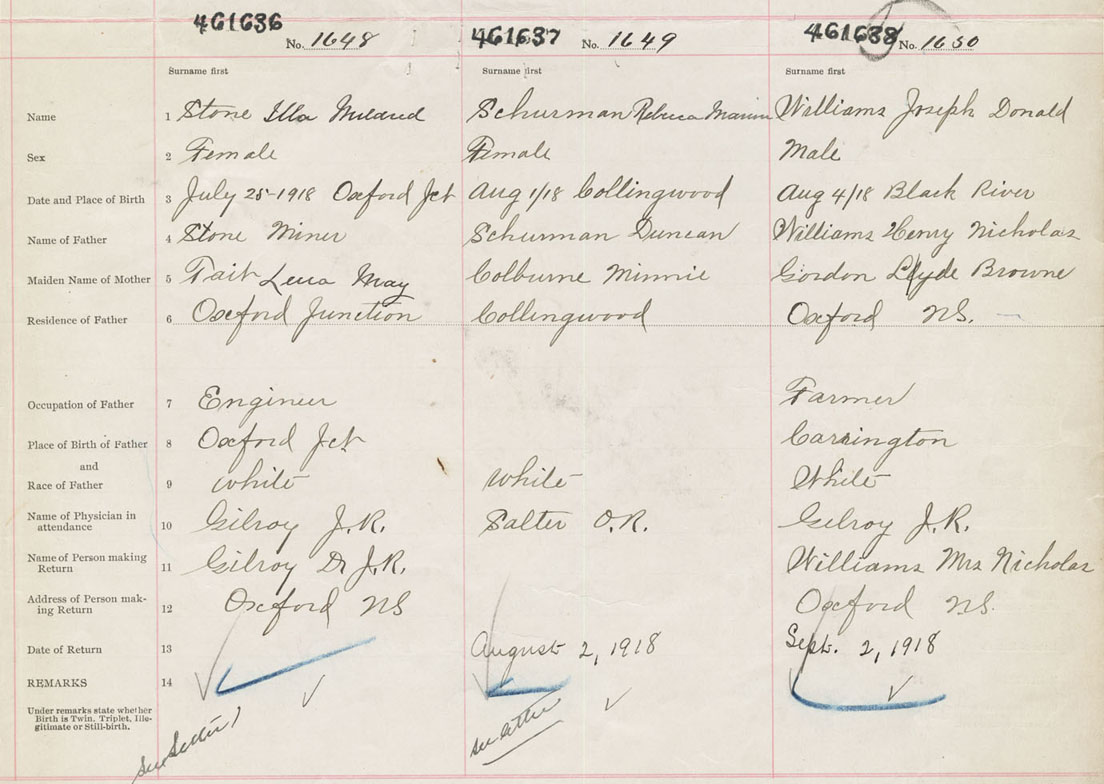 461636 No. 1648 461637 No. 1649 461638 No. 1650
Surname first Surname first Surname first
Name 1 Stone Illa Mildred Schurman Rebecca Williams Joseph Donald
Sex 2 Female Female Male
Date and Place of Birth 3 July 25-1918 Oxford Jct Aug 1/18 Collingwood Aug 4/18 Black River
Name of Father 4 Stone Miner Schurman Duncan Williams Henry Nicholas
Maiden Name of Mother 5 Tait Lena May Colburne Minnie Gordon Clyde Browne
Residence of Father 6 Oxford Junction Collingwood Oxford NS.
Occupation of Father 7 Engineer Farmer
Place of Birth of Father 8 Oxford Jct Carrington
and
Race of Father 9 white white White
Name of Physician in attendance 10 Gilroy J.R. Salter O.R. Gilroy J.R.
Name of Person making Return 11 Gilroy Dr J.R. Williams Mrs Nicholas
Address of Person mak-ing Return 12 Oxford NS Oxford N.S.
Date of Return 13 August 2, 1918 Sept. 2, 1918
REMARKS 14
Under remarks state whether
Birth is Twin, Triplet, Ille-
gitimate or Still-birth.
see letter see letter